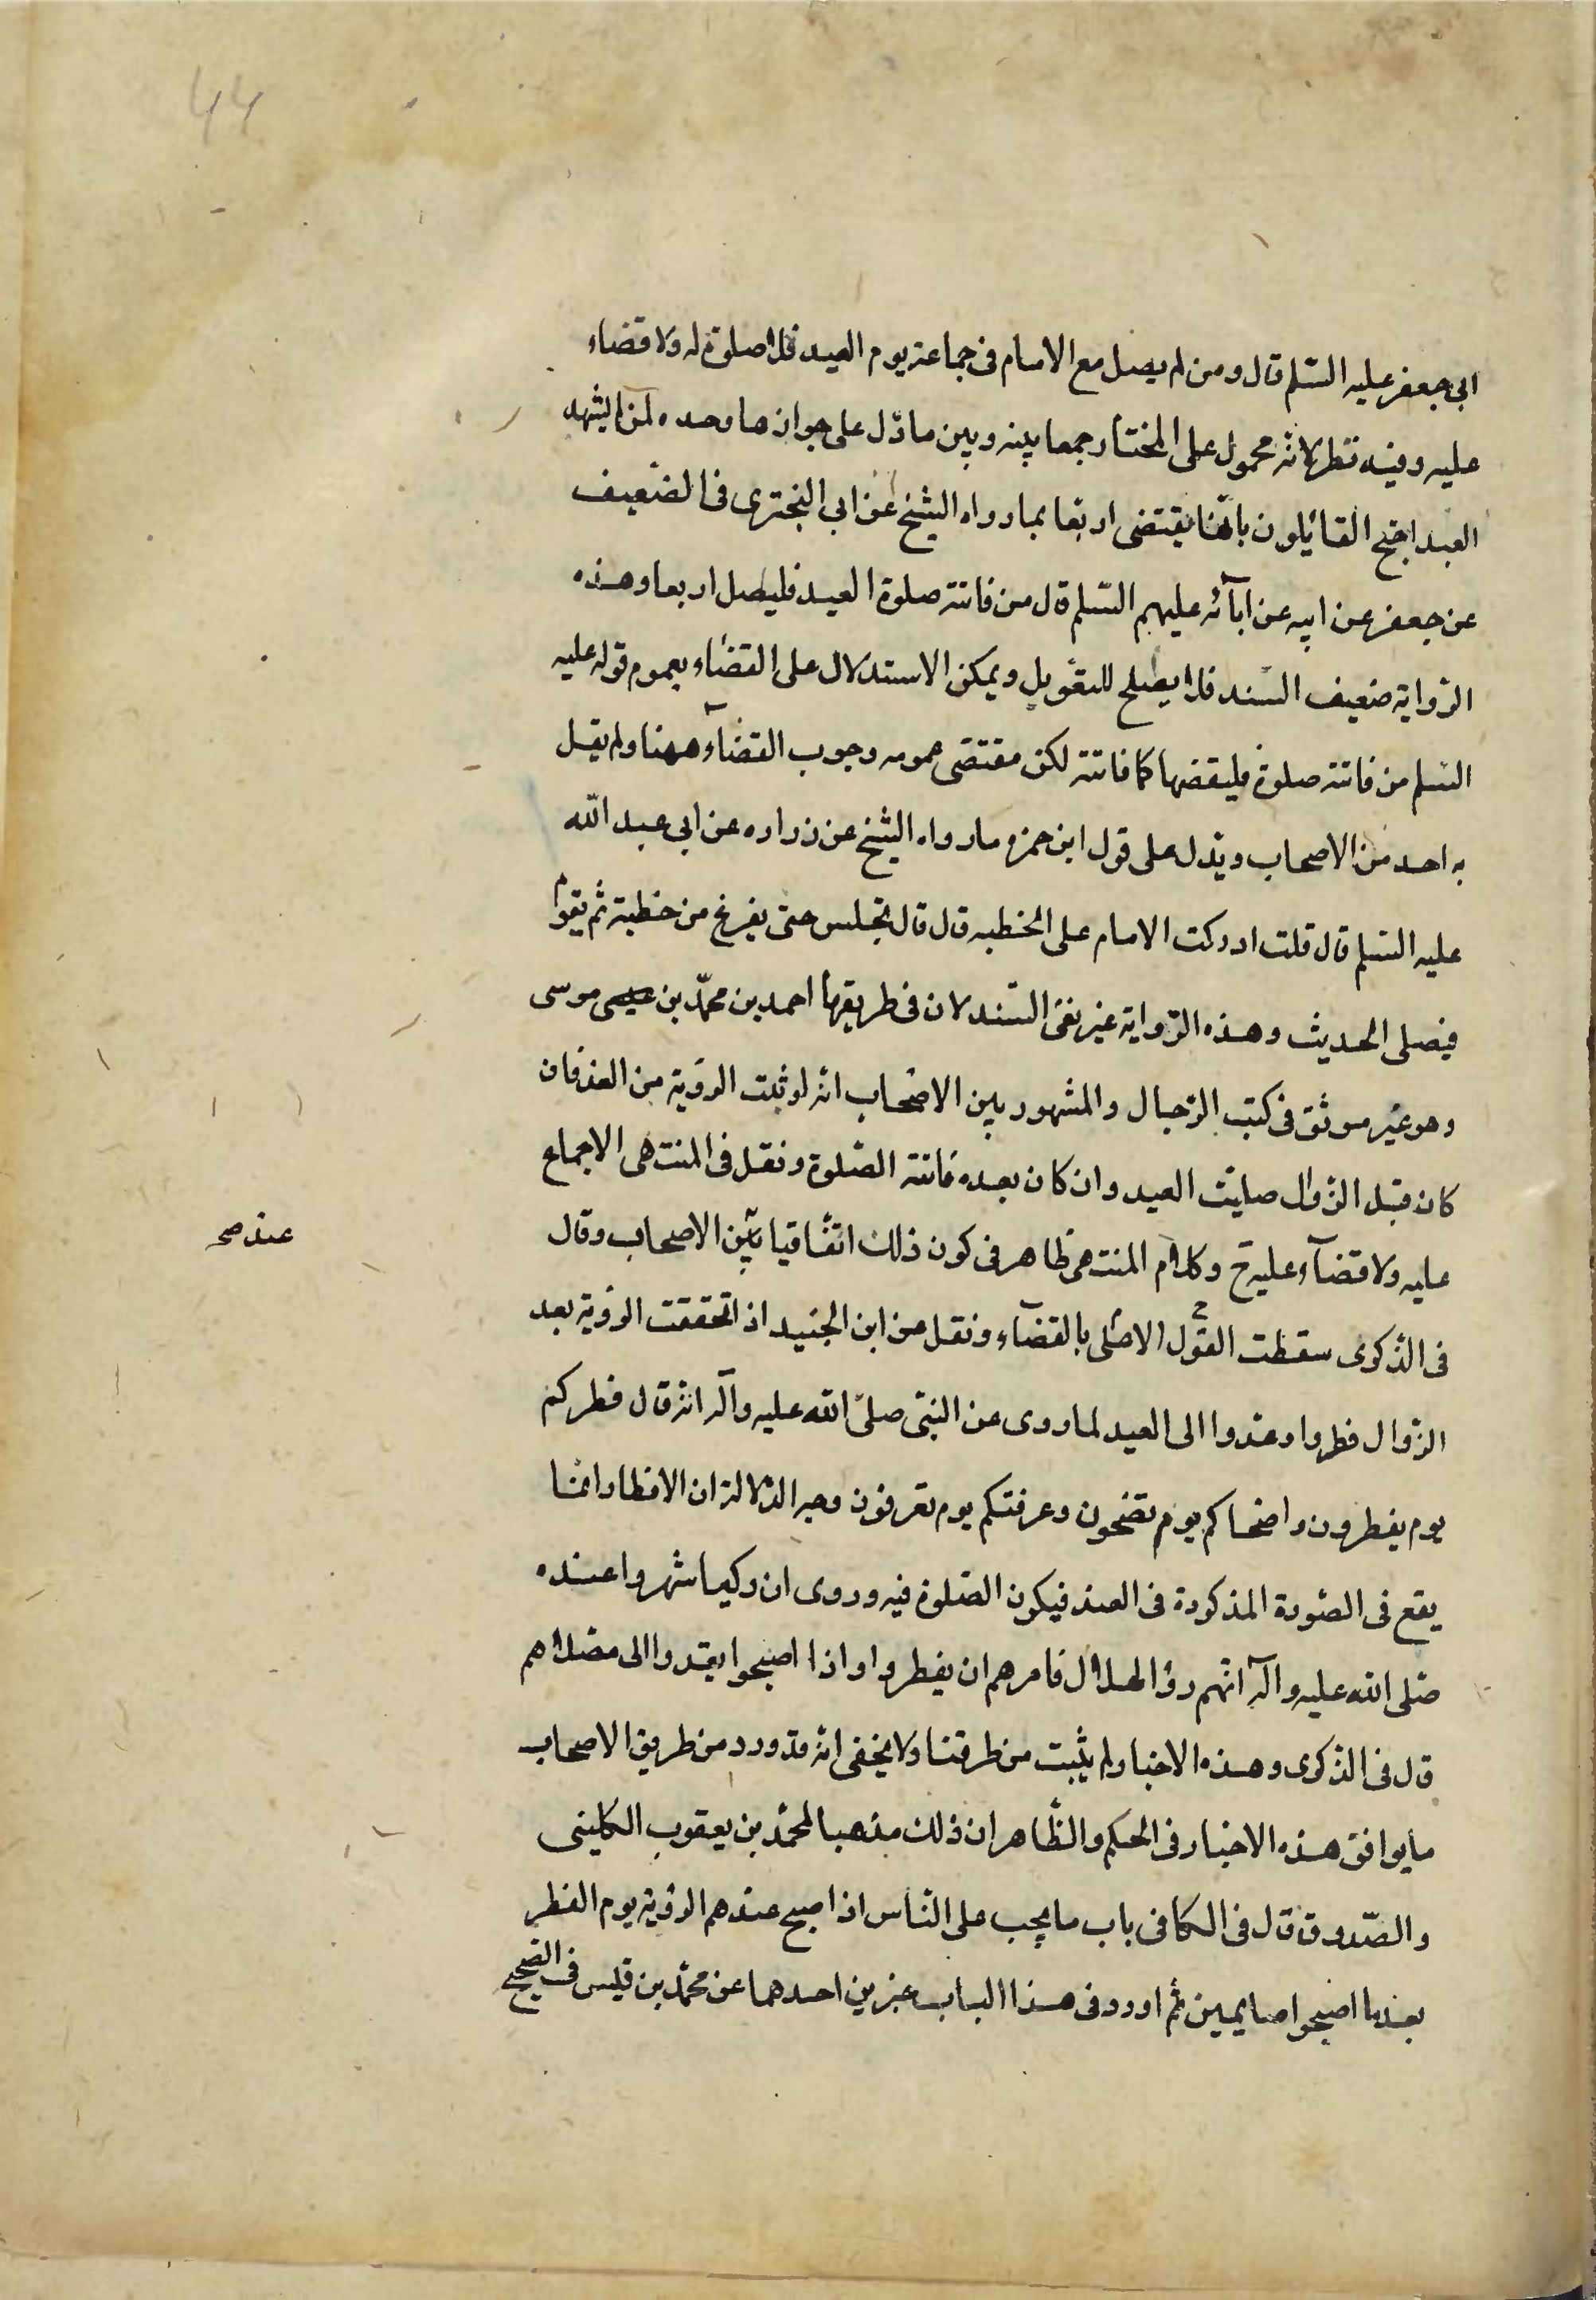 44
ابی جعفر علیه السّلم قال ومن لم یصل مع الامام فی جماعة یوم العید فلا صلوة له ولا قضاء
علیه وفیه نظر لانه محمول علی المختار جمعا بینه وبین ما دل علی جوازها وحده لمن لم یشهد
العید احتج القائلون بانها یقتضی اربعا بما رواه الشیخ عن ابی البختری فی الضعیف
عن جعفر عن ابیه عن ابآئه علیهم السّلم قال من فاتته صلوة العید فلیصل اربعا وهذه
الروایة ضعیف السند فلا یصلح للتعویل ویمکن الاستدلال علی القضاء بعموم قوله علیه
السلم من فاتته صلوة فلیقضها کما فاتته لکن مقتضی عمومه وجوب القضآء ههنا ولم یقل
به احد من الاصحاب ویدل علی قول ابن حمزه ما رواه الشیخ عن زراره عن ابی عبد الله
علیه السّلم قال قلت ادرکت الامام علی الخطبه قال قال تجلس حتی یفرغ من خطبة ثم یقوم
فیصلی الحدیث وهذه الروایة غیر نقی السند لان فی طریقها احمد بن محمّد بن عیسی موسی
وهو غیر موثق فی کتب الرجال والمشهور بین الاصحاب انه لو ثبت الرؤیة من الغد فان
کان قبل الزوال صلیت العید وان کان بعده فاتته الصلوة ونقل فی المنتهی الاجماع
علیه ولا قضآء علیه ح وکلام المنتهی ظاهر فی کون ذلک اتفاقیا بین الاصحاب وقال
عند صح
فی الذکری سقطت القول الاصلی بالقضآء ونقل عن ابن الجنید اذا تحققت الرؤیة بعد
الزوال فطروا وغدوا الی العید لما روی عن النبی صلّی الله علیه وآله انه قال فطرکم
یوم یفطرون واضحاکم یوم تضحون وعرفتکم یوم تعرفون وجه الدلالة ان الافطار انما
یقع فی الصورة المذکورة فی الغد فیکون الصلوة فیه وروی ان رکبا شهدوا عنده
صلی الله علیه وآله انهم رؤا الهلال فامرهم ان یفطروا واذا اصبحوا یغدوا الی مصلاهم
قال فی الذکری وهذه الاخبار لم یثبت من طرقنا ولا یخفی انه قد ورد من طریق الاصحاب
ما یوافق هذه الاخبار فی الحکم والظاهر ان ذلک مذهبا لمحمد بن یعقوب الکلینی
والصدوق قال فی الکافی باب ما یجب علی الناس اذا صح عندهم الرؤیة یوم الفطر
بعد ما اصبحوا صایمین ثم اورد فی هذا الباب خبرین احدهما عن محمّد بن قیس فی الصحیح